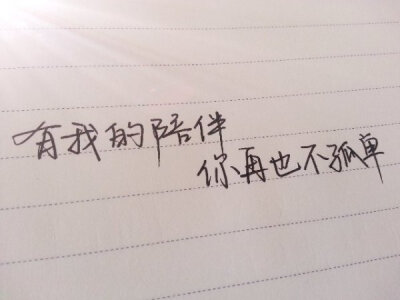 有我的陪伴
你再也不孤单